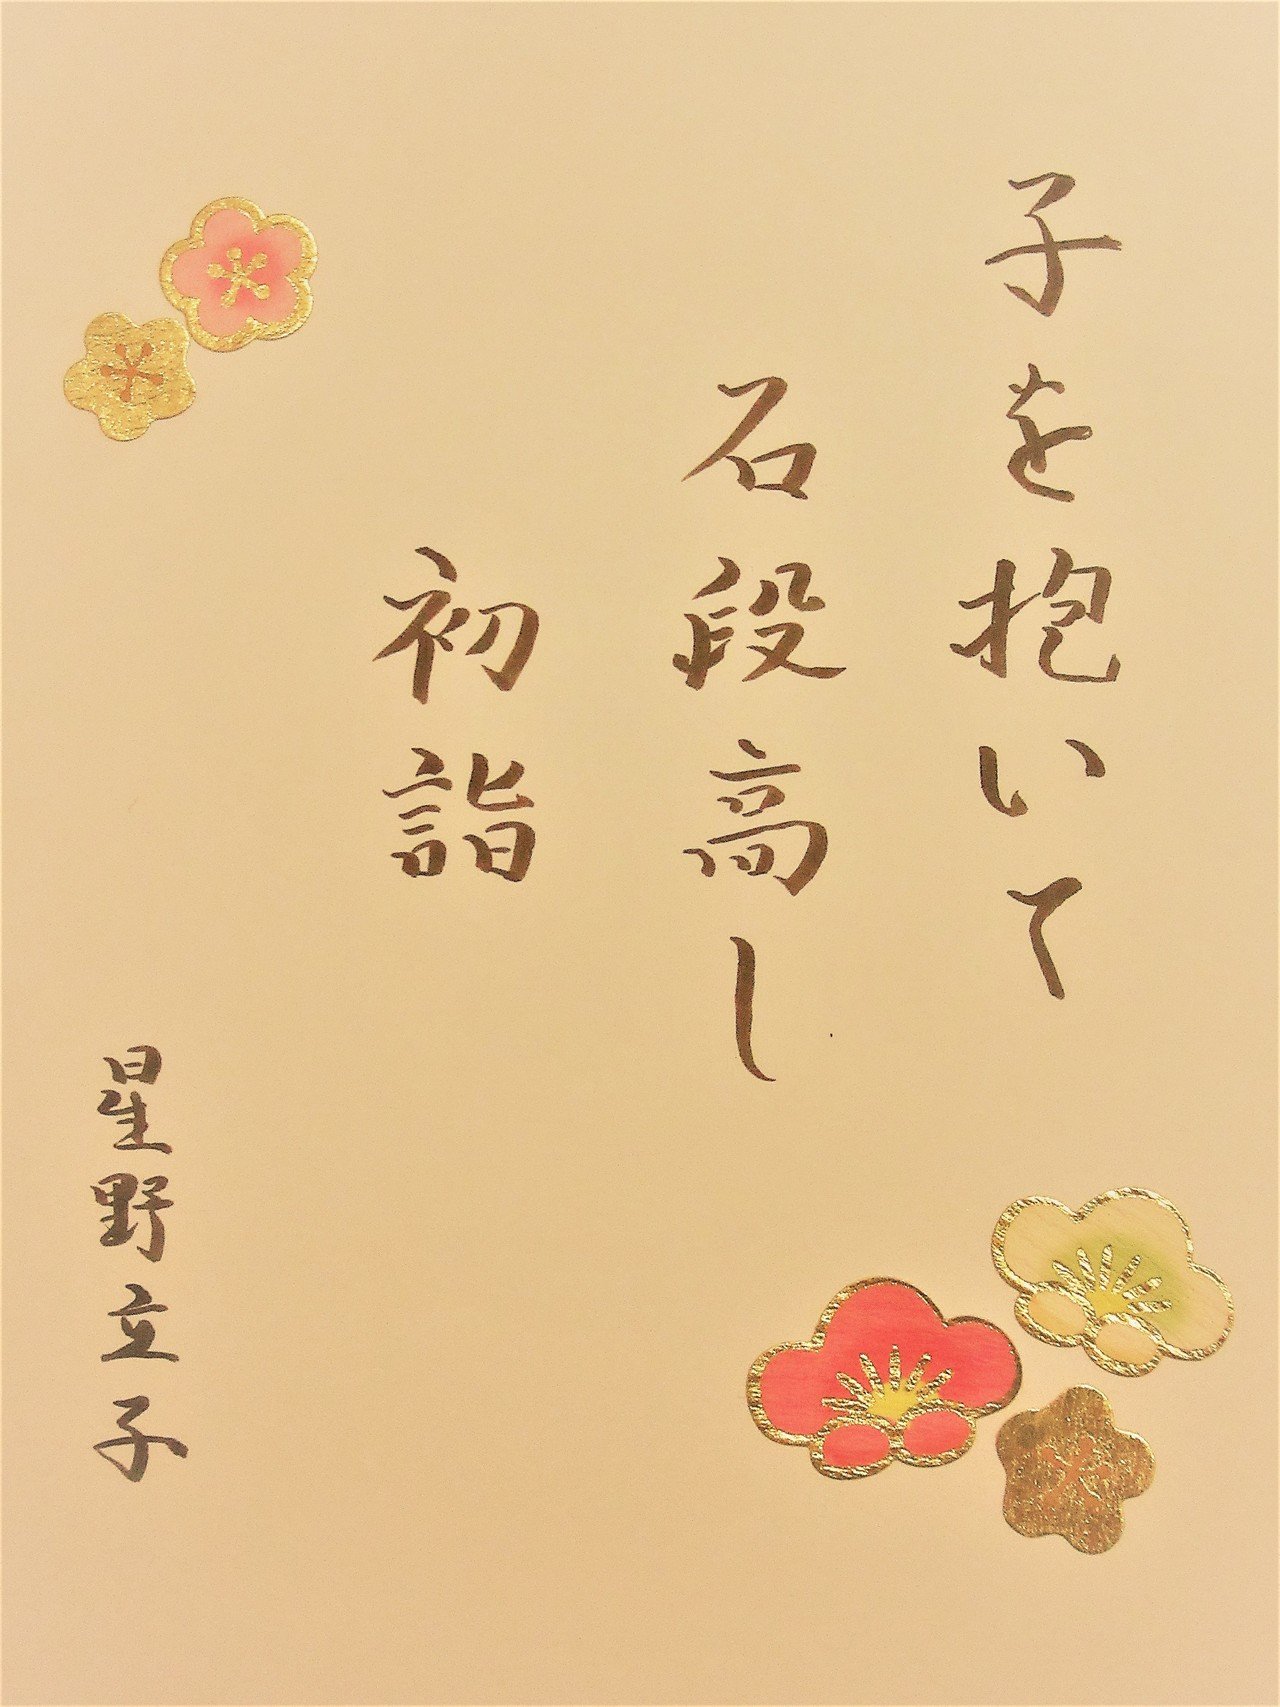 子を抱いて
石段高し
初詣
星野立子